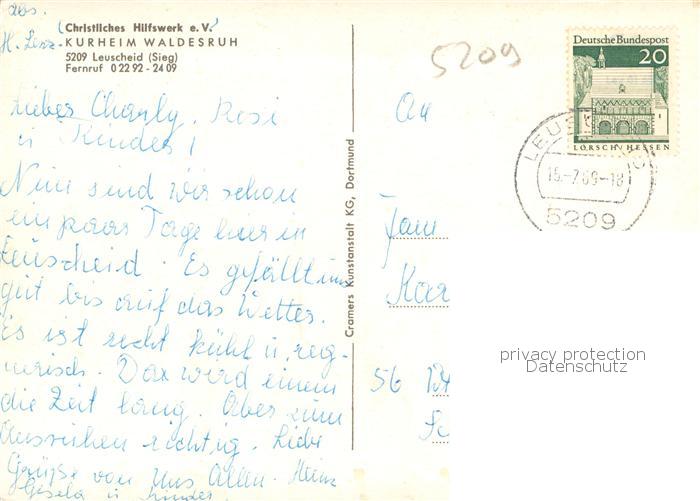 abs.
Christliches Hilfswerk e.V.
H. Lenz.
KURHEIM WALDESRUH
5209 Leuscheid (Sieg)
Fernruf 0 22 92 - 24 09
5209
Deutsche Bundespost
20
LORSCH/HESSEN
15.-7.69-18
5209
Lieber Charly, Rosi
u. Kinder!
Nun sind wir schon
ein paar Tage hier in
Leuscheid. Es gefällt uns
gut bis auf das Wetter.
Es ist recht kühl u. reg-
nerisch. Da wird einem
die Zeit lang. Aber zum
Ausruhen richtig. Liebe
Grüße von uns Allen. Heinz
Gisela u. Kinder.
Cramers Kunstanstalt KG, Dortmund
An
Fam
Kar
56
privacy protection
Datenschutz